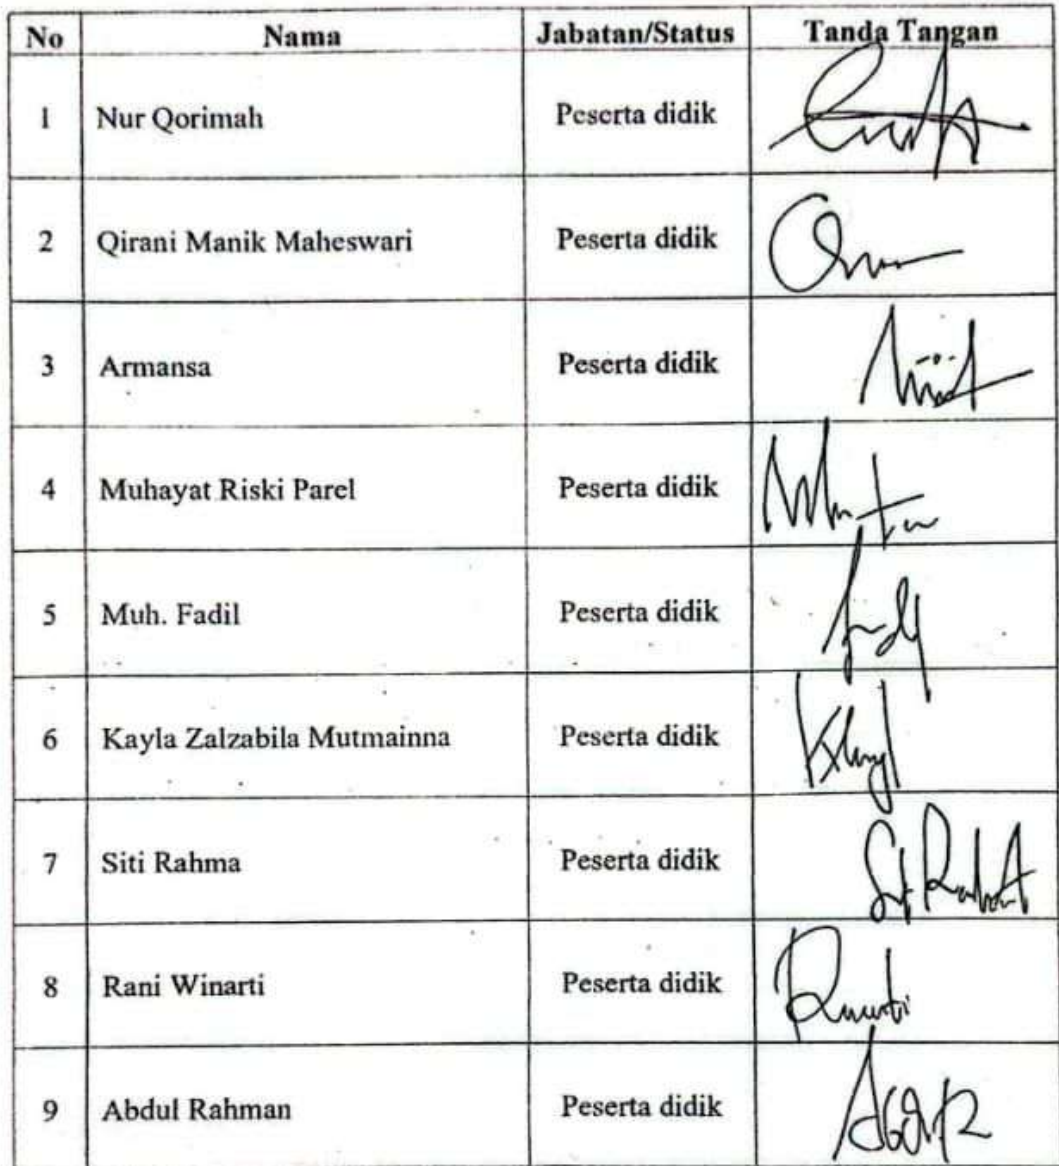 No Nama Jabatan/Status Tanda Tangan
1 Nur Qorimah Peserta didik
2 Qirani Manik Maheswari Peserta didik
3 Armansa Peserta didik
4 Muhayat Riski Parel Peserta didik
5 Muh. Fadil Peserta didik
6 Kayla Zalzabila Mutmainna Peserta didik
7 Siti Rahma Peserta didik
8 Rani Winarti Peserta didik
9 Abdul Rahman Peserta didik